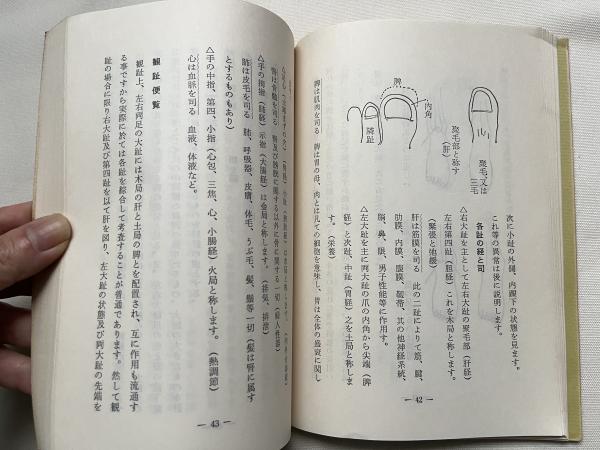 次に小趾の外側、内踝下の状態を見ます。
これ等の異常は後に説明します。
各趾の経と司
△右大趾を主として左右大趾の聚毛部（肝経）
左右第四趾（胆経）これを木局と称します。
（緊張と弛緩）
肝は筋膜を司る　此の二趾によりて筋、腱、
肋膜、内膜、腹膜、靱帯、其の他神経系統、
脳、鼻、眼、男子性能等に作用す。
△左大趾を主に両大趾の爪の内角から尖端（脾
経）と次趾、中趾（胃経）之を土局と称しま
す。（栄養）
脾は肌肉を司る　脾は胃の母、肉とは凡ての細胞を意味し、胃は全体の盛衰に関し
脾
内角
隣趾
聚毛部と称す
（肝）
聚毛、又は
三毛
— 42 —
肺は皮毛を司る　肺、呼吸器、皮膚、体毛、うぶ毛　髪、鬚等一切（髪は腎に属す
とするものもあり）
△手の中指、第四、小指（心包、三焦、心、小腸経）火局と称します。（熱調節）
心は血脈を司る　血液、体液など。
観趾便覧
観趾上、左右両足の大趾には木局の肝と土局の脾とを配置され、互に作用も流通す
る事ですから実際に於ては各趾を綜合して考査することが普通であります。然して観
趾の場合に限り右大趾及び第四趾を以て肝を図り、左大趾の状態及び両大趾の先端を
— 43 —